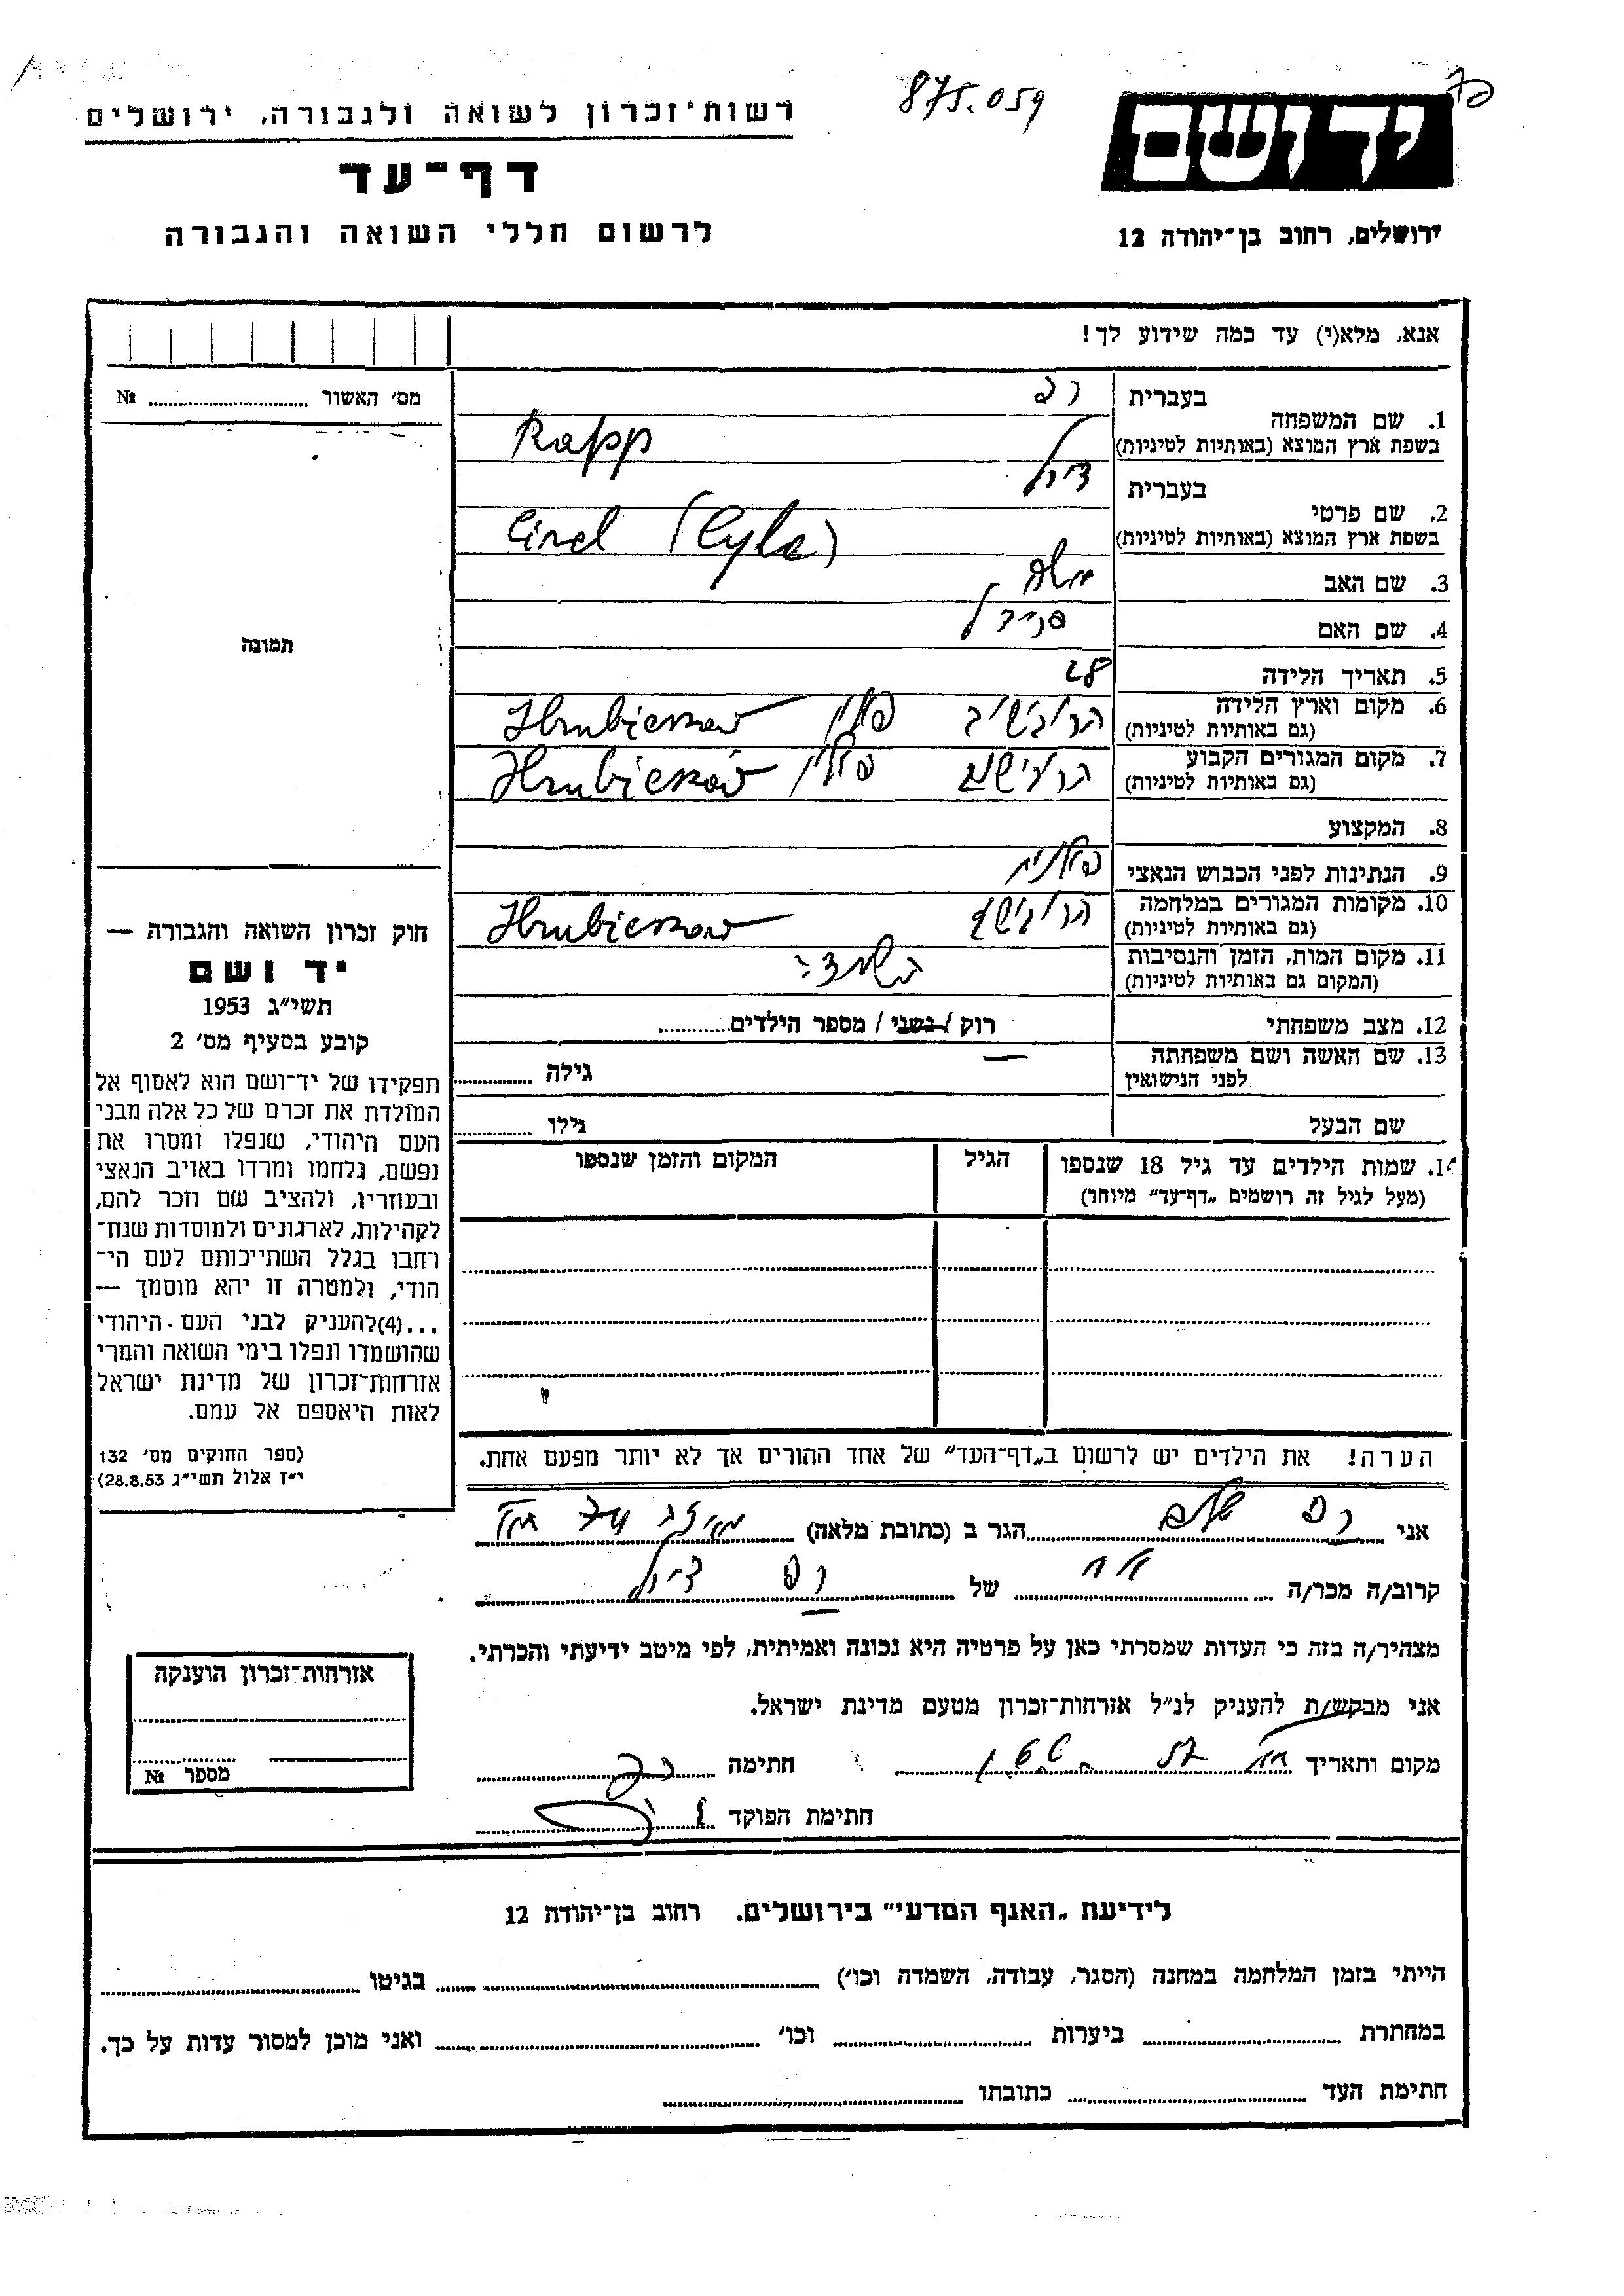 875.059
רשות־זכרון לשואה ולגבורה, ירושלים
דף־עד
לרשום חללי השואה והגבורה
יד ושם
ירושלים, רחוב בן־יהודה 12
אנא, מלא(י) עד כמה שידוע לך!
מס׳ האשור № 
תמונה
1. שם המשפחה
בעברית רפ
בשפת ארץ המוצא (באותיות לטיניות) Rapp
2. שם פרטי
בעברית צירל
בשפת ארץ המוצא (באותיות לטיניות) Cirel (Cyla)
3. שם האב משה
4. שם האם פריידל
5. תאריך הלידה 28
6. מקום וארץ הלידה
(גם באותיות לטיניות) הרובישוב פולין Hrubieszow
7. מקום המגורים הקבוע
(גם באותיות לטיניות) הרובישוב פולין Hrubieszów
8. המקצוע
9. הנתינות לפני הכבוש הנאצי פולנית
10. מקומות המגורים במלחמה
(גם באותיות לטיניות) הרובישוב Hrubieszow
11. מקום המות, הזמן והנסיבות
(המקום גם באותיות לטיניות) השמדה
12. מצב משפחתי רוק / נשוי / מספר הילדים
13. שם האשה ושם משפחתה
לפני הנישואין — גילה
שם הבעל גילו
14. שמות הילדים עד גיל 18 שנספו
(מעל לגיל זה רושמים „דף־עד" מיוחד)
הגיל
המקום והזמן שנספו
חוק זכרון השואה והגבורה —
יד ושם
תשי״ג 1953
קובע בסעיף מס׳ 2
תפקידו של יד־ושם הוא לאסוף אל
המולדת את זכרם של כל אלה מבני
העם היהודי, שנפלו ומסרו את
נפשם, נלחמו ומרדו באויב הנאצי
ובעוזריו, ולהציב שם וזכר להם,
לקהילות, לארגונים ולמוסדות שנח־
רחבו בגלל השתייכותם לעם הי־
הודי, ולמטרה זו יהא מוסמך —
...(4)להעניק לבני העם היהודי
שהושמדו ונפלו בימי השואה והמרי
אזרחות־זכרון של מדינת ישראל
לאות היאספם אל עמם.
(ספר החוקים מס׳ 132
י״ז אלול תשי״ג 28.8.53)
הערה! את הילדים יש לרשום ב„דף־העד" של אחד ההורים אך לא יותר מפעם אחת.
אני רפ שלום הגר ב (כתובת מלאה)
קרוב/ה מכר/ה אח של רפ צירל
מצהיר/ה בזה כי העדות שמסרתי כאן על פרטיה היא נכונה ואמיתית, לפי מיטב ידיעתי והכרתי.
אני מבקש/ת להעניק לנ״ל אזרחות־זכרון מטעם מדינת ישראל.
מקום ותאריך חתימה
חתימת הפוקד
אזרחות־זכרון הוענקה
מספר №
לידיעת „האגף המדעי" בירושלים. רחוב בן־יהודה 12
הייתי בזמן המלחמה במחנה (הסגר, עבודה, השמדה וכו׳) בגיטו
במחתרת ביערות וכו׳ ואני מוכן למסור עדות על כך.
חתימת העד כתובתו